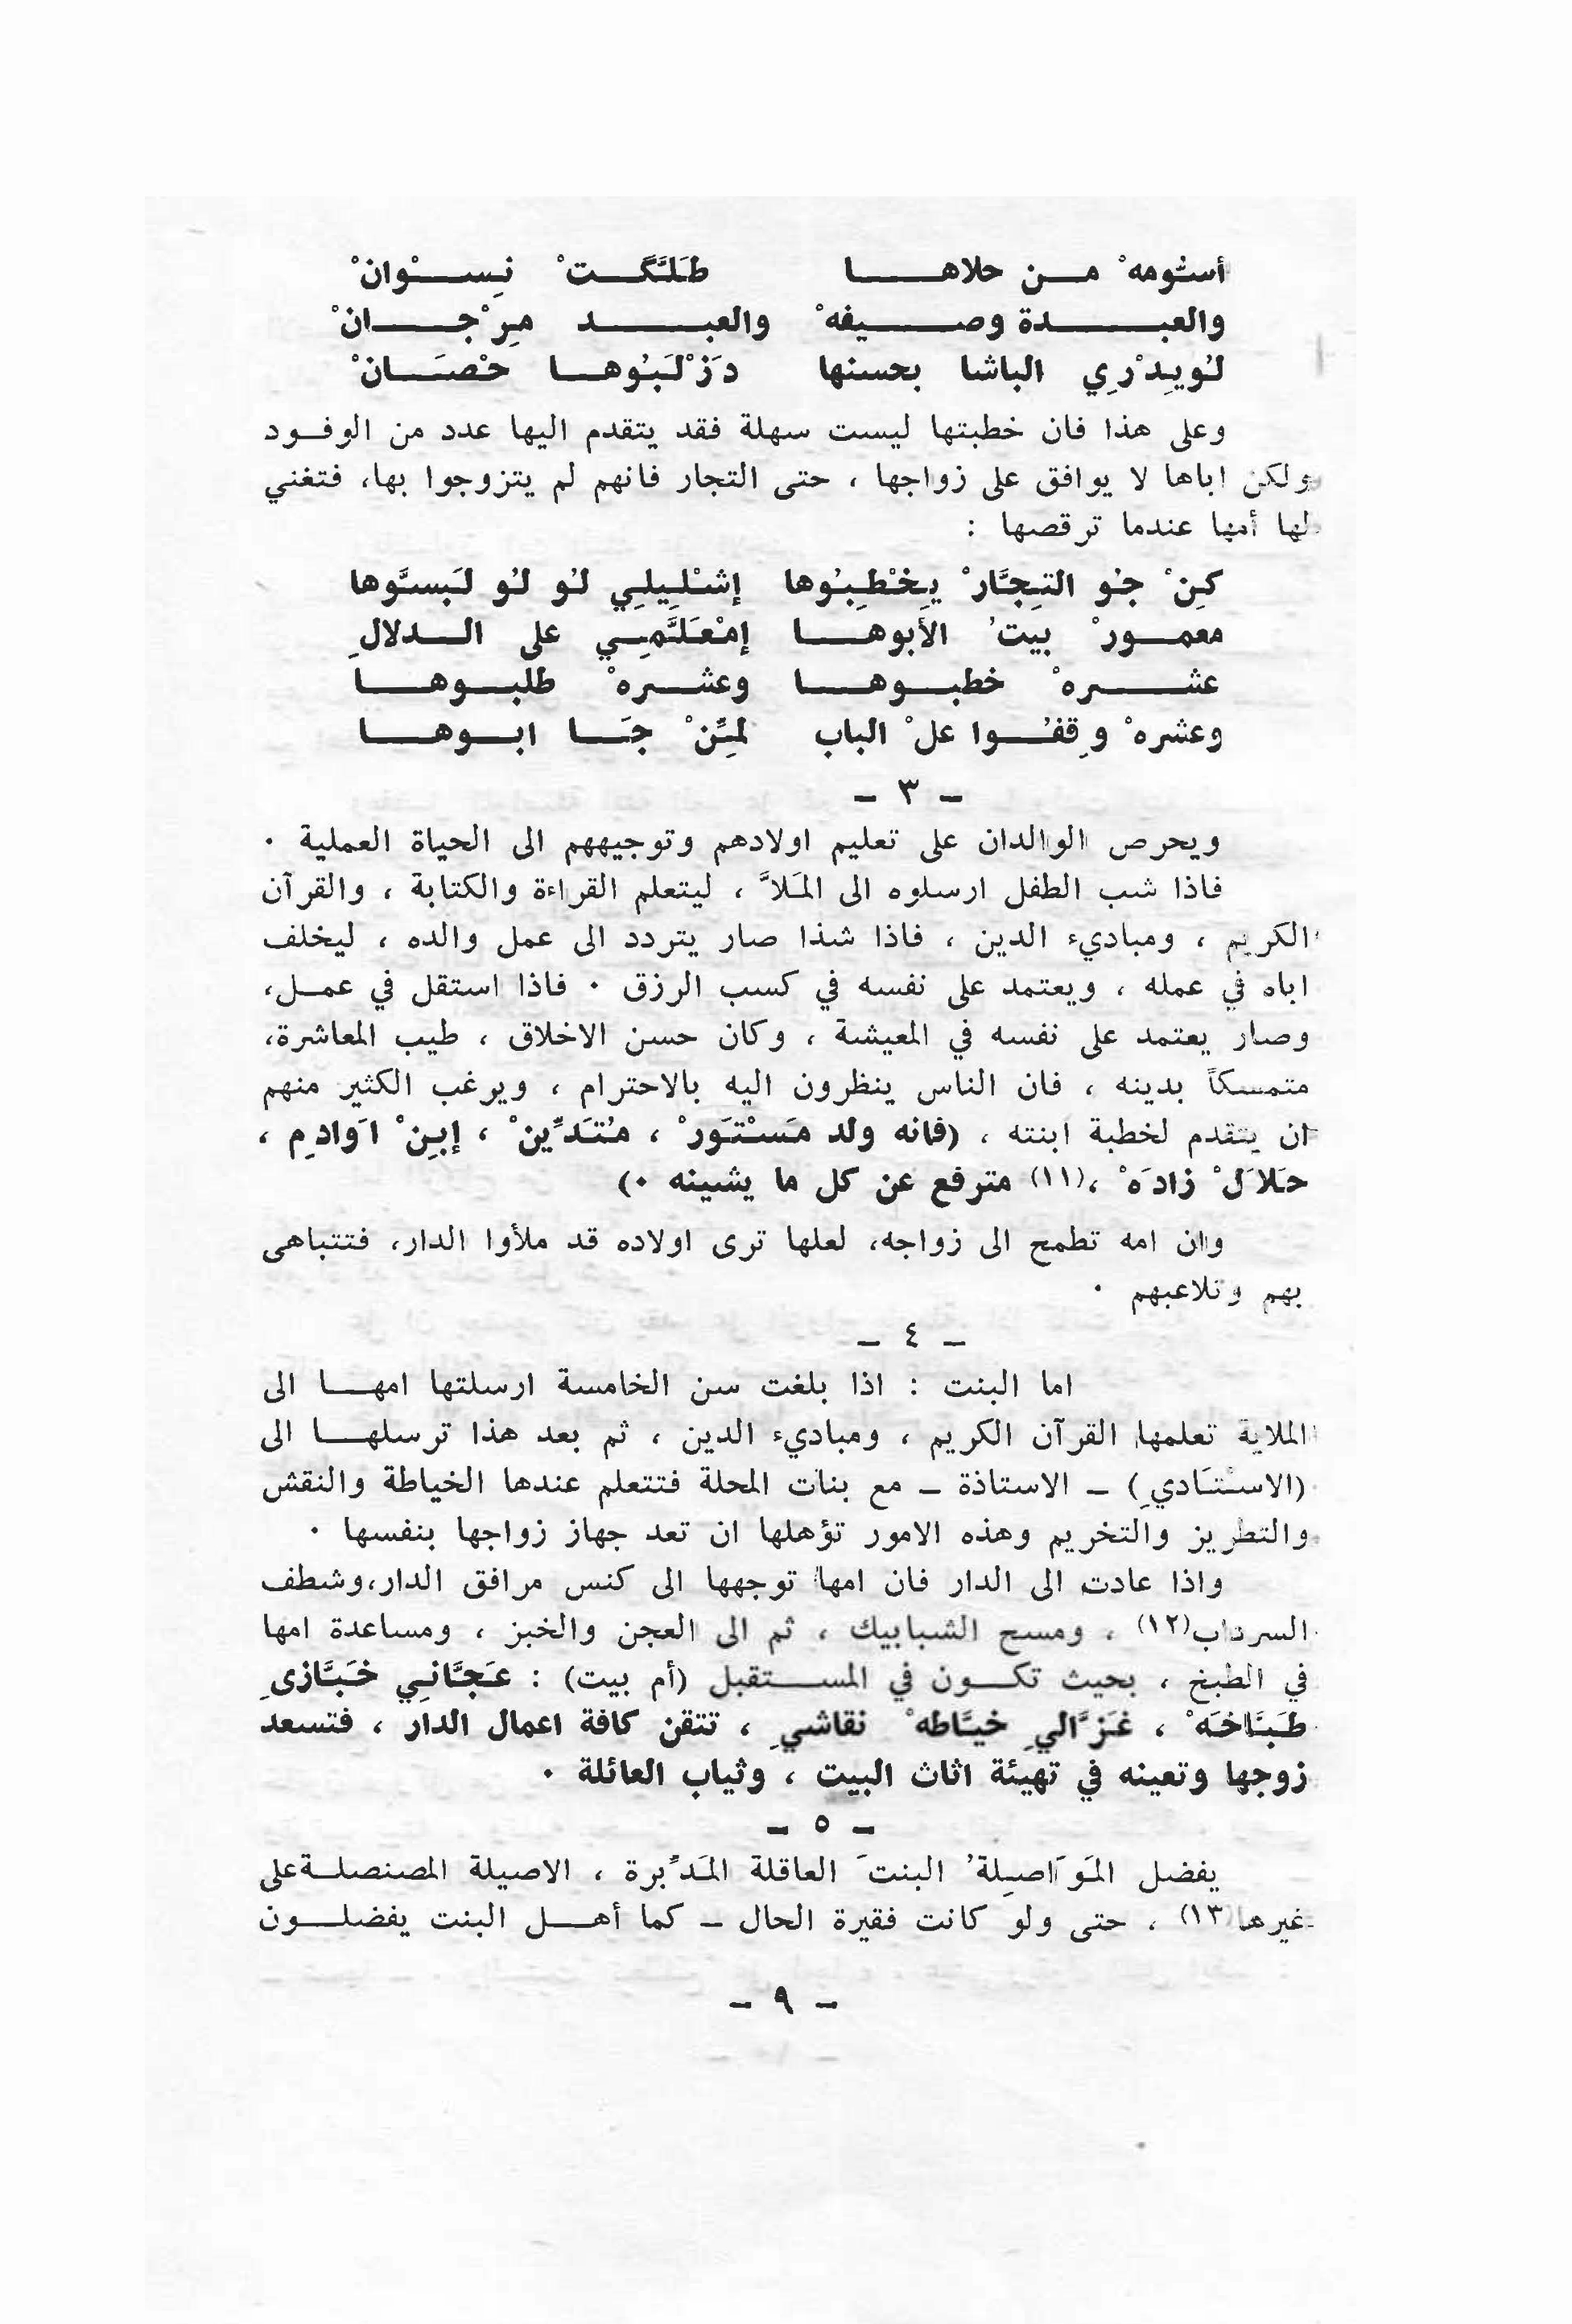 أسئومهْ مـن حلاهـا طَلَّگـتْ نِسـْوانْ
والعبـدة وصـيفهْ والعبـد مِرْجـانْ
لُويِدْرِي الباشا بحسنها دَزْ لَبُوهـا حْصَـانْ
وعلى هذا فان خطبتها ليست سهلة فقد يتقدم اليها عدد من الوفـود
ولكن اباها لا يوافق على زواجها ، حتى التجار فانهم لم يتزوجوا بها، فتغني
لها أمها عندما ترقصها :
كِنْ جُو التِجَّارْ يِخْطِبُوها إشْلِيلِي لُو لُو لَبسَّوها
معمـورْ بيتُ الأبوهـا إمْعَلَّمِـي على الـدلالِ
عشـرهْ خطبـوهـا وعشـرهْ طلبـوهـا
وعشرهْ وِقفُـوا علْ الباب لمِّنْ جَـا ابـوهـا
– ٣ –
ويحرص الوالدان على تعليم اولادهم وتوجيههم الى الحياة العملية ٠
فاذا شب الطفل ارسلوه الى المَلاَّ ، ليتعلم القراءة والكتابة ، والقرآن
الكريم ، ومباديء الدين ، فاذا شذا صار يتردد الى عمل والده ، ليخلف
اباه في عمله ، ويعتمد على نفسه في كسب الرزق ٠ فاذا استقل في عمـل،
وصار يعتمد على نفسه في المعيشة ، وكان حسن الاخلاق ، طيب المعاشرة،
متمسكاً بدينه ، فان الناس ينظرون اليه بالاحترام ، ويرغب الكثير منهم
ان يتقدم لخطبة ابنته ، (فانه ولد مَسْتَورْ ، مُتَدِّينْ ، إبِنْ اَوادِم ،
حَلاَلْ زادَهْ ،(١١) مترفع عن كل ما يشينه ٠)
وان امه تطمح الى زواجه، لعلها ترى اولاده قد ملأوا الدار، فتتباهى
بهم وتلاعبهم ٠
– ٤ –
اما البنت : اذا بلغت سن الخامسة ارسلتها امهـا الى
الملاية تعلمها القرآن الكريم ، ومباديء الدين ، ثم بعد هذا ترسلهـا الى
(الاسْتَادي) – الاستاذة – مع بنات المحلة فتتعلم عندها الخياطة والنقش
والتطريز والتخريم وهذه الامور تؤهلها ان تعد جهاز زواجها بنفسها ٠
واذا عادت الى الدار فان امها توجهها الى كنس مرافق الدار،وشطف
السرداب(١٢) ، ومسح الشبابيك ، ثم الى العجن والخبز ، ومساعدة امها
في الطبخ ، بحيث تكـون في المسـتقبل (أم بيت) : عَجَّانِي خَبَّازىِ
طَبَّاخَهْ ، غَزَّاليِ خيَّاطهْ نقاشيِ ، تتقن كافة اعمال الدار ، فتسعد
زوجها وتعينه في تهيئة اثاث البيت ، وثياب العائلة ٠
– ٥ –
يفضل المَوَاصِلةُ البنتَ العاقلة المَدِّبرة ، الاصيلة المصنصلـة على
غيرها(١٣) ، حتى ولو كانت فقيرة الحال – كما أهـل البنت يفضلـون
– ٩ –